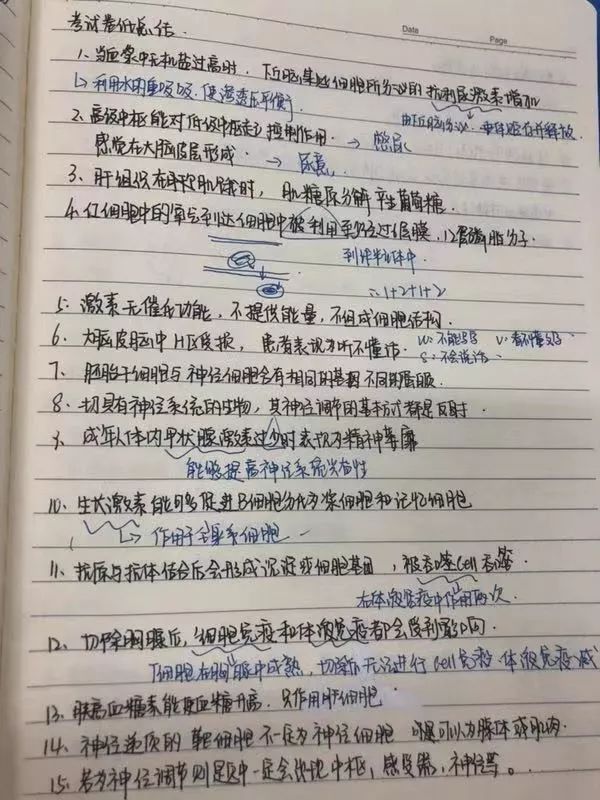 考试卷优总结.
Date Page
1. 当血浆中无机盐过高时. 下丘脑某些细胞所分泌的抗利尿激素增加
↳ 利用水的重吸收. 使渗透压平衡 由下丘脑分泌. 垂体贮存并释放.
2. 高级中枢能对低级中枢起控制作用. → 憋尿
感觉在大脑皮层形成. → 尿意.
3. 肝组织在呼 肌饿时, 肌糖原分解产生葡萄糖.
4. 红细胞中的氧气到达细胞中被利用至经过 层膜. 12层磷脂分子.
到线粒体中.
∴ 1+2+1+2
5. 激素无催化功能, 不提供能量, 不组成细胞结构.
6. 大脑皮脑中H区受损, 患者表现为听不懂话. W: 不能写字 V: 看不懂文字
S: 不会说话.
7. 胚胎干细胞与神经细胞含有相同的基因不同的蛋服.
8. 一切具有神经系统的生物, 其神经调节的基本方式都是反射.
9. 成年人体内甲状腺激素过少时表现为精神萎靡
能够提高神经系统兴奋性
10. 生长激素能够促进B细胞分化为浆细胞和记忆细胞
↳ 作用于全身系细胞
11. 抗原与抗体结合后会形成沉淀或细胞基团, 被吞噬cell吞噬.
在体液免疫中作用两次.
12. 切除胸腺后, 细胞免疫和体液免疫都会受到影响.
T细胞在胸腺中成熟, 切除后无法进行cell免疫. 体液免疫减
13. 胰高血糖素能使血糖升高. 只作用肝细胞.
14. 神经递质的靶细胞不一定为神经细胞 可以为腺体或肌肉.
15. 若为神经调节则 中一定会出现中枢, 感受器, 神经等。